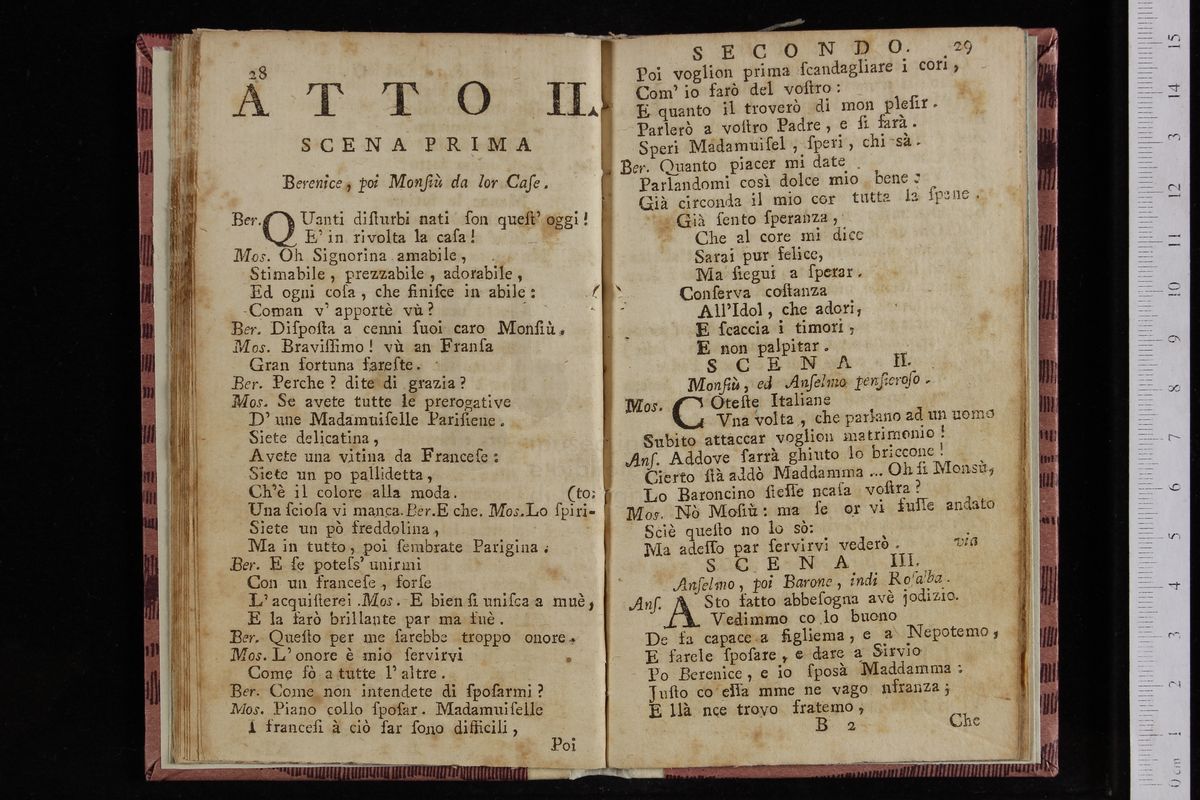 28
ATTO II.
SCENA PRIMA
Berenice, poi Monſiù da lor Caſe.
Ber. QUanti diſturbi nati ſon queſt' oggi!
E' in rivolta la caſa!
Mos. Oh Signorina amabile,
Stimabile, prezzabile, adorabile,
Ed ogni coſa, che finiſce in abile:
Coman v' apportè vù?
Ber. Diſpoſta a cenni ſuoi caro Monſiù.
Mos. Braviſſimo! vù an Franſa
Gran fortuna fareſte.
Ber. Perche? dite di grazia?
Mos. Se avete tutte le prerogative
D' une Madamuiſelle Pariſiene.
Siete delicatina,
Avete una vitina da Franceſe:
Siete un po pallidetta,
Ch'è il colore alla moda. (to:
Una ſcioſa vi manca. Ber. E che. Mos. Lo ſpiri-
Siete un pò freddolina,
Ma in tutto, poi ſembrate Parigina.
Ber. E ſe poteſs' unirmi
Con un franceſe, forſe
L' acquiſterei. Mos. E bien ſi uniſca a muè,
E la farò brillante par ma fuè.
Ber. Queſto per me ſarebbe troppo onore.
Mos. L' onore è mio ſervirvi
Come fò a tutte l' altre.
Ber. Come non intendete di ſpoſarmi?
Mos. Piano collo ſpoſar. Madamuiſelle
I franceſi à ciò far ſono difficili,
Poi
SECONDO. 29
Poi voglion prima ſcandagliare i cori,
Com' io farò del voſtro:
E quanto il troverò di mon pleſir.
Parlerò a voſtro Padre, e ſi farà.
Speri Madamuiſel, ſperi, chi sà.
Ber. Quanto piacer mi date
Parlandomi così dolce mio bene:
Già circonda il mio cor tutta la ſpene.
Già ſento ſperanza,
Che al core mi dice
Sarai pur felice,
Ma ſiegui a ſperar.
Conſerva coſtanza
All'Idol, che adori,
E ſcaccia i timori,
E non palpitar.
SCENA II.
Monſiù, ed Anſelmo penſieroſo.
Mos. COteſte Italiane
Vna volta, che parlano ad un uomo
Subito attaccar voglion matrimonio!
Anſ. Addove ſarrà ghiuto lo briccone!
Cierto ſtà addò Maddamma ... Oh ſi Monsù,
Lo Baroncino ſieſſe ncaſa voſtra?
Mos. Nò Moſiù: ma ſe or vi fuſſe andato
Sciè queſto no lo sò:
Ma adeſſo par ſervirvi vederò. via
SCENA III.
Anſelmo, poi Barone, indi Roſalba.
Anſ. ASto fatto abbeſogna avè jodizio.
Vedimmo co lo buono
De fa capace a figliema, e a Nepotemo,
E farele ſpoſare, e dare a Sirvio
Po Berenice, e io ſposà Maddamma:
Juſto co eſſa mme ne vago nfranza;
E llà nce trovo fratemo,
B 2 Che